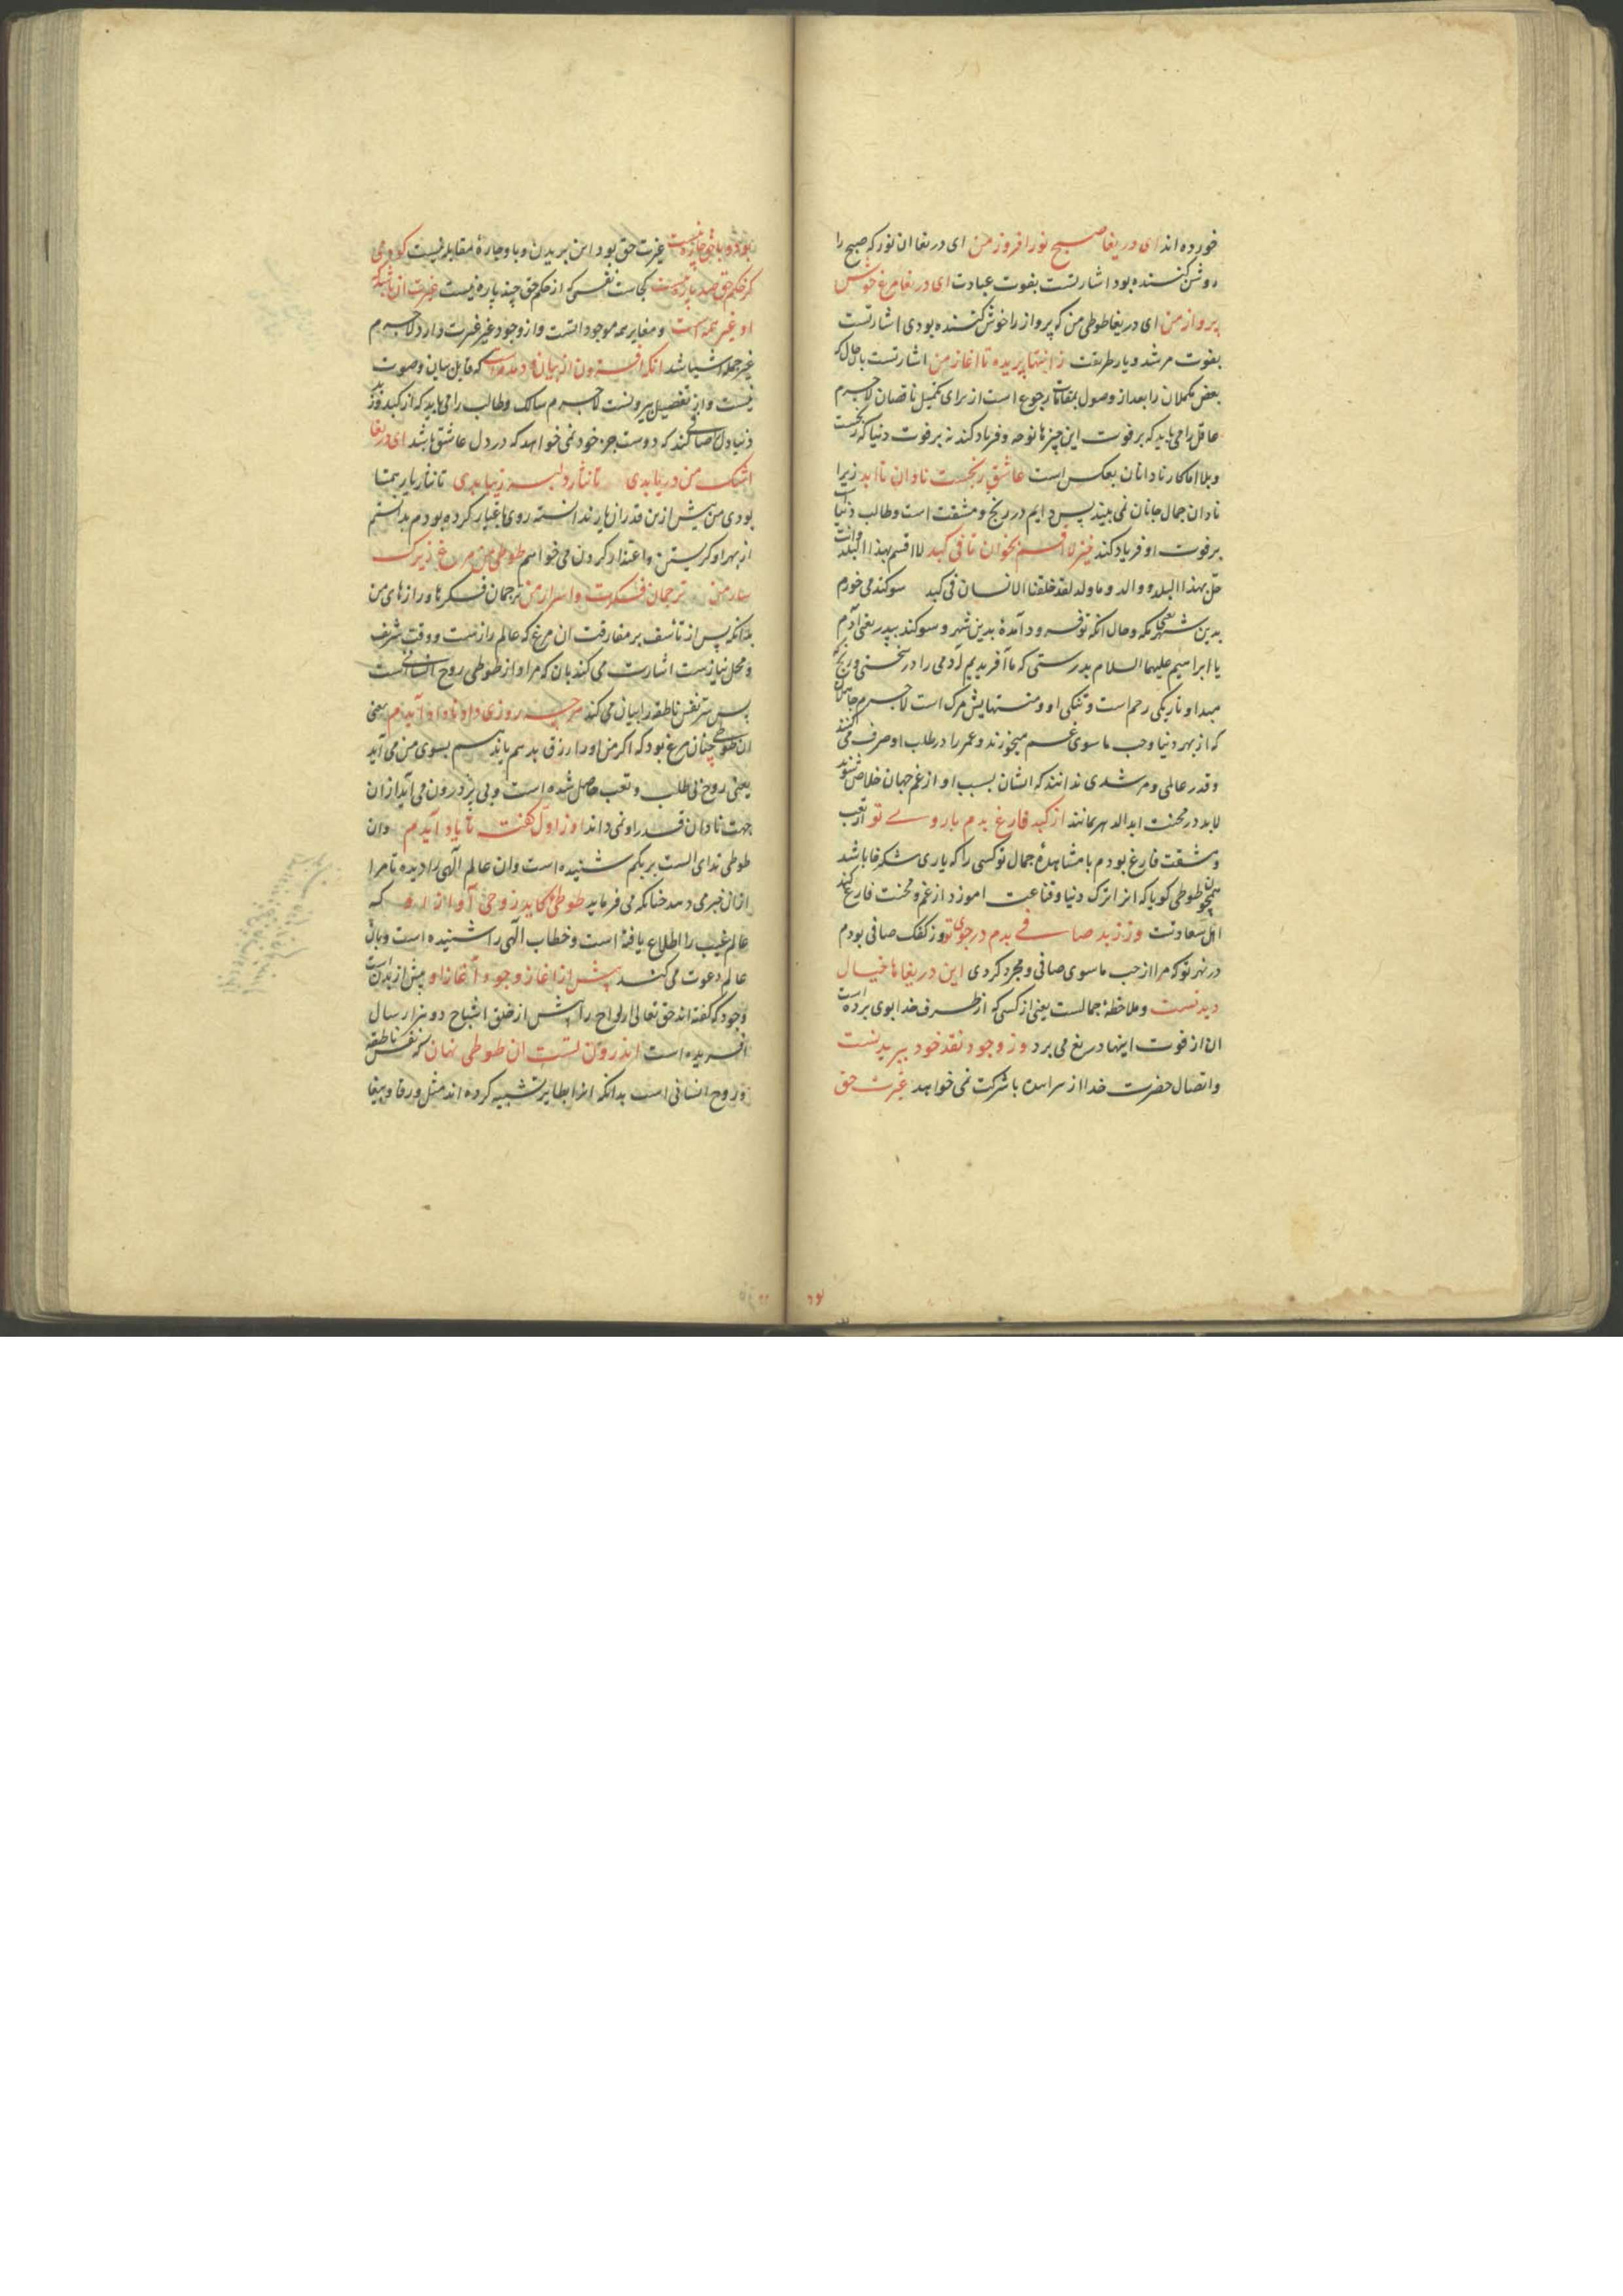 خورده اند ای دریغا صبح نور افروز من ای دریغا ان نور که صبح را
روشن کننده بود اشارتست بفوت عبادت ای دریغا مرغ خوش
پرواز من ای دریغا طوطی من که پرواز را خوش کننده بودی اشارتست
بفوت مرشد و یار طریقت ز انتها پریده تا اغاز من اشارتست بانکه
بعض مکملان را بعد از وصول بمقامات رجوع است از برای تکمیل ناقصان لاجرم
عاقل را می باید که بر فوت این چیزها نوحه و فریاد کند نه بر فوت دنیا که رنجست
و بلا اما کار نادانان بعکس است عاشق رنجست نادان تا ابد زیرا
نادان جمال جانان نمی بیند پس دایم در رنج و مشقت است و طالب دنیاست
بر فوت او فریاد کند خیز لا اقسم بخوان تا فی کبد لا اقسم بهذا البلد وانت
حل بهذا البلد و والد و ما ولد لقد خلقنا الانسان فی کبد سوکند می خورم
بدین شهر یعنی مکه و حال انکه تو فرود آمدهٔ بدین شهر و سوکند بپدر یعنی آدم
یا ابراهیم علیهما السلام بدرستی که ما آفریدیم آدمی را در سختی و رنج که
مبداو تاریکی رحم است و تنکی او و منتهایش مرک است لاجرم جاهلان
که از بهر دنیا و حب ما سوی غم میخورند و عمر را در طلب او صرف می کنند
و قدر عالمی و مرشدی ندانند که ایشان بسبب او از غم جهان خلاص شوند
لابد در محنت ابد الدهر بمانند از کبد فارغ بدم با روی تو از تعب
و مشقت فارغ بودم با مشاهدهٔ جمال تو کسی را که یاری شکر خا باشد
همچون طوطی کویا که او را ترک دنیا و قناعت اموزد از غم و محنت فارغ کند
اهل سعادت وز زبد صافی بدم در جوی تو وز کفک صافی بودم
در نهر تو که مرا از حب ما سوی صافی و مجرد کردی این دریغاها خیال
دیدنست و ملاحظهٔ جمالست یعنی از کسی که از طرف خدا بوی برده است
ان از فوت اینها دریغ می برد وز وجود نقد خود ببریدنست
و اتصال حضرت خدا از سر اینها با شرکت نمی خواهد غیرت حق
بود و با حق چاره نیست غیرت حق بود این بریدن و با و چارهٔ مقابله نیست کو دمی
کز حکم حق صد پاره نیست کجاست نفسی که از حکم حق چند پاره نیست غیرت ان باشد که
او غیر همه است و مغایر همه موجوداتست و از وجود غیر غیرت دارد لاجرم
غیر جمله اشیا شد انکه افزون از بیان و دمدمه است که قابل بیان و صورت
نیست و از تفصیل بیرونست لاجرم سالک و طالب را می باید که از کبد وز زبد
دنیا دل صافی کند که دوست جز خود نمی خواهد که در دل عاشق باشد ای دریغا
اشک من دریا بدی تا نثار دلبر زیبا بدی تا نثار یار همتا
بودی من پیش ازین قدر ان یار ندانسته روی با غیار کرده بودم بدانستم
از بهر او کریستن و اعتذار کردن می خواهم طوطی من مرغ زیرک
سار من ترجمان فکرت و اسرار من ترجمان فکرها و رازهای من
بدانکه پس از تأسف بر مفارقت ان مرغ که عالم رازست و وقت شریف
و محل نیازست اشارت می کند بان که مراد از طوطی روح انسانیست
پس سر نفس ناطقه را بیان می کند هر چه روزی داد و ناداد آیدم یعنی
ان طوطی چنان مرغ بود که اکر من او را رزق بدهم یا ندهم بسوی من می آید
یعنی روح بی طلب و تعب حاصل شده است و بی نزد درون می آید از ان
جهت نادان قدر او نمی داند او ز اول کفت تا یاد آیدم وان
طوطی ندای الست بربکم شنیده است وان عالم الهی را دیده تا مرا
از ان خبری دهد چنانکه می فرماید طوطی کاید ز وحی آواز او که
عالم غیب را اطلاع یافته است و خطاب الهی را شنیده است و بان
عالم دعوت می کند پیش از اغاز وجود آغاز او پیش از بدن است
وجود که کفته اند حق تعالی ارواح را پیش از خلق اشباح دو هزار سال
آفریده است اندرون تست ان طوطی نهان که نفس ناطقه
و روح انسانی است بدانکه او را بطایر تشبیه کرده اند مثل ورقا و ببغا